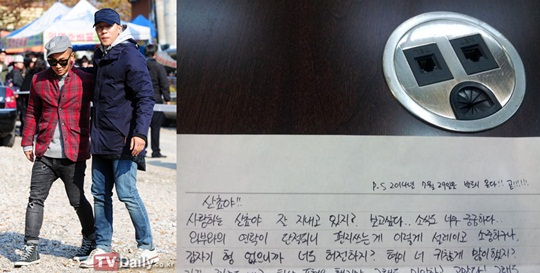 TVDaily
P.S 2014년 7월 29일은 반드시 온다!! 끝!!!!!
산초야!!
사랑하는 산초야 잘 지내고 있지? 보고싶다.. 소식도 너무 궁금하다..
외부와의 연락이 단절되니 편지쓰는게 이렇게 설레이고 소중하구나.
갑자기 형 없으니까 너도 허전하지? 형이 너 귀찮게 많이했지?